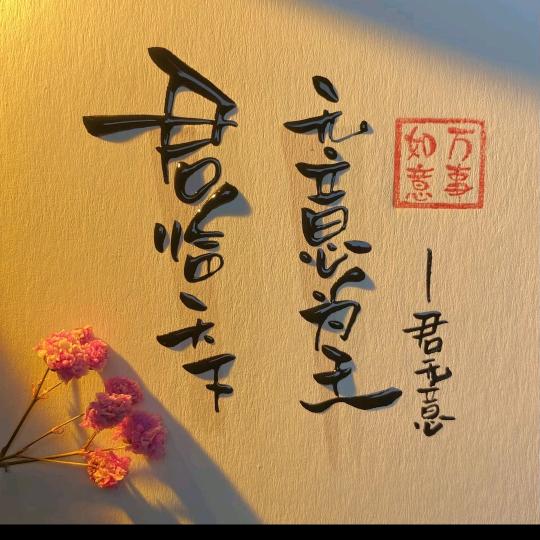 万事
如意
—君无意
无意为王
君临天下